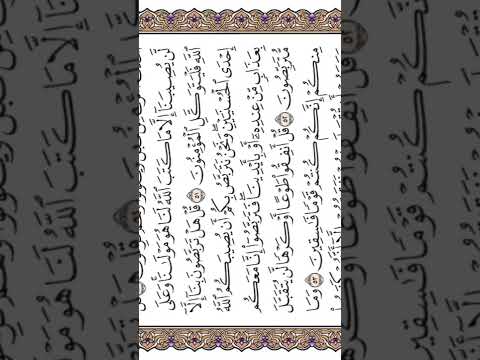 لَّن يُصِيبَنَآ إِلَّا مَا كَتَبَ ٱللَّهُ لَنَا هُوَ مَوْلَىٰنَا وَعَلَى
ٱللَّهِ فَلْيَتَوَكَّلِ ٱلْمُؤْمِنُونَ ٥١ قُلْ هَلْ تَرَبَّصُونَ بِنَآ إِلَّآ
إِحْدَى ٱلْحُسْنَيَيْنِ وَنَحْنُ نَتَرَبَّصُ بِكُمْ أَن يُصِيبَكُمُ ٱللَّهُ
بِعَذَابٍ مِّنْ عِندِهِۦٓ أَوْ بِأَيْدِينَا فَتَرَبَّصُوٓا۟ إِنَّا مَعَكُم
مُّتَرَبِّصُونَ ٥٢ قُلْ أَنفِقُوا۟ طَوْعًا أَوْ كَرْهًا لَّن يُتَقَبَّلَ
مِنكُمْ إِنَّكُمْ كُنتُمْ قَوْمًا فَٰسِقِينَ ٥٣ وَمَا